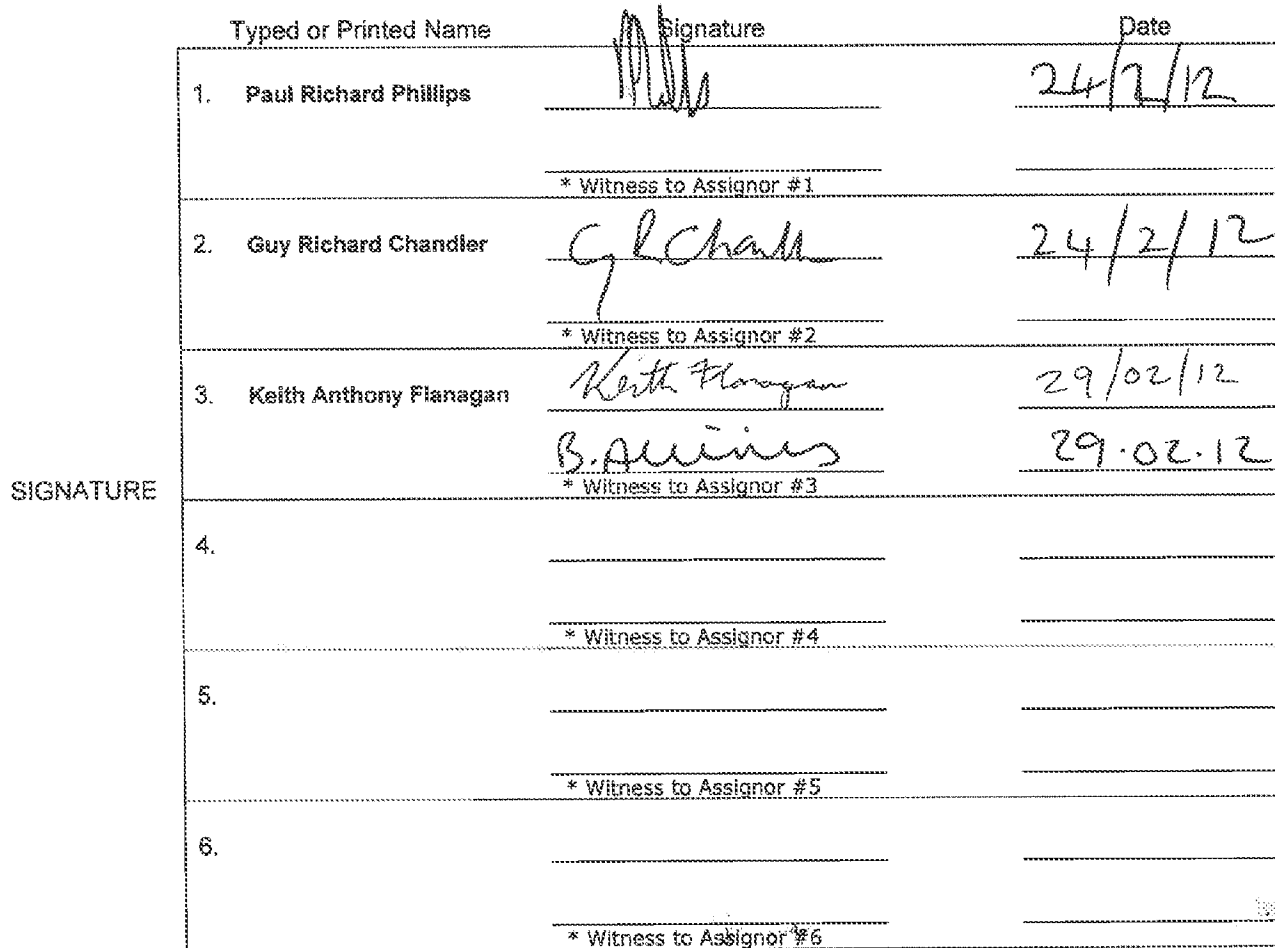 Typed or Printed Name Signature Date
1. Paul Richard Phillips 24/2/12
* Witness to Assignor #1
2. Guy Richard Chandler 24/2/12
* Witness to Assignor #2
3. Keith Anthony Flanagan Keith Flanagan 29/02/12
B. 29.02.12
* Witness to Assignor #3
SIGNATURE
4.
* Witness to Assignor #4
5.
* Witness to Assignor #5
6.
* Witness to Assignor #6